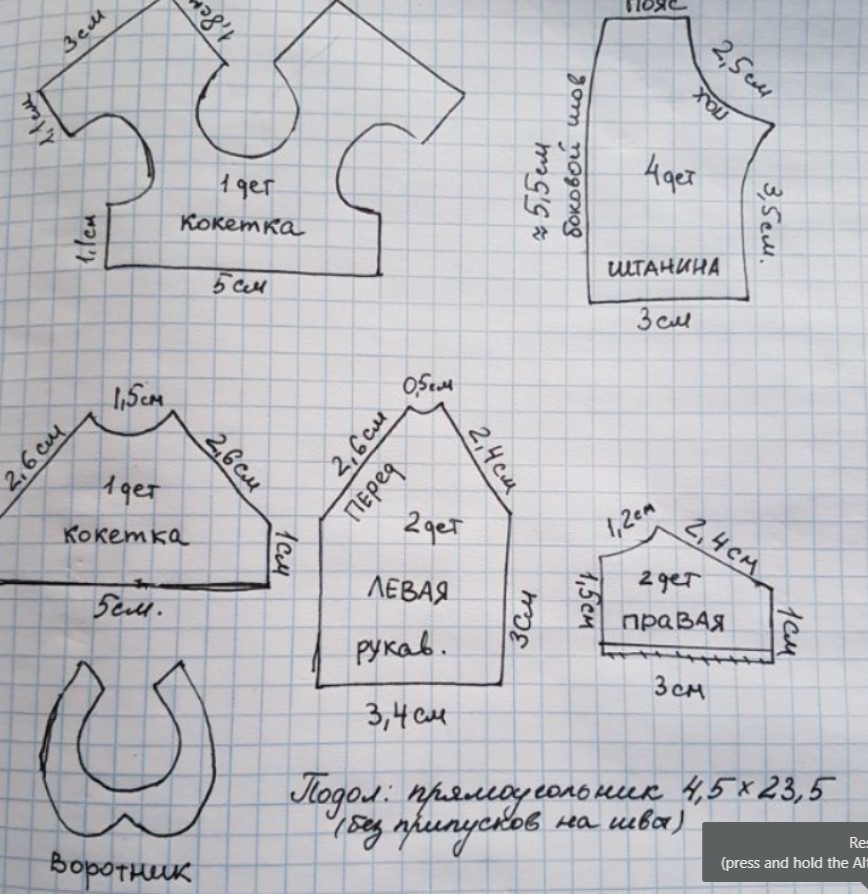 3см
1,8см
1,1см
1 дет
кокетка
1,1см
5см
Пояс
2,5см
пах
≈ 5,5см
боковой шов
4дет
3,5см.
ШТАНИНА
3см
1,5см
2,6см
2,6см
1 дет
кокетка
1см
5см.
0,5см
2,6см
ПЕРед
2,4см
2дет
ЛЕВАЯ
рукав.
3см
3,4см
1,2см
2,4см
1,5см
2дет
ПРАВАЯ
1см
3см
Воротник
Подол: прямоугольник 4,5×23,5
(без припусков на швы)
(press and hold the Al